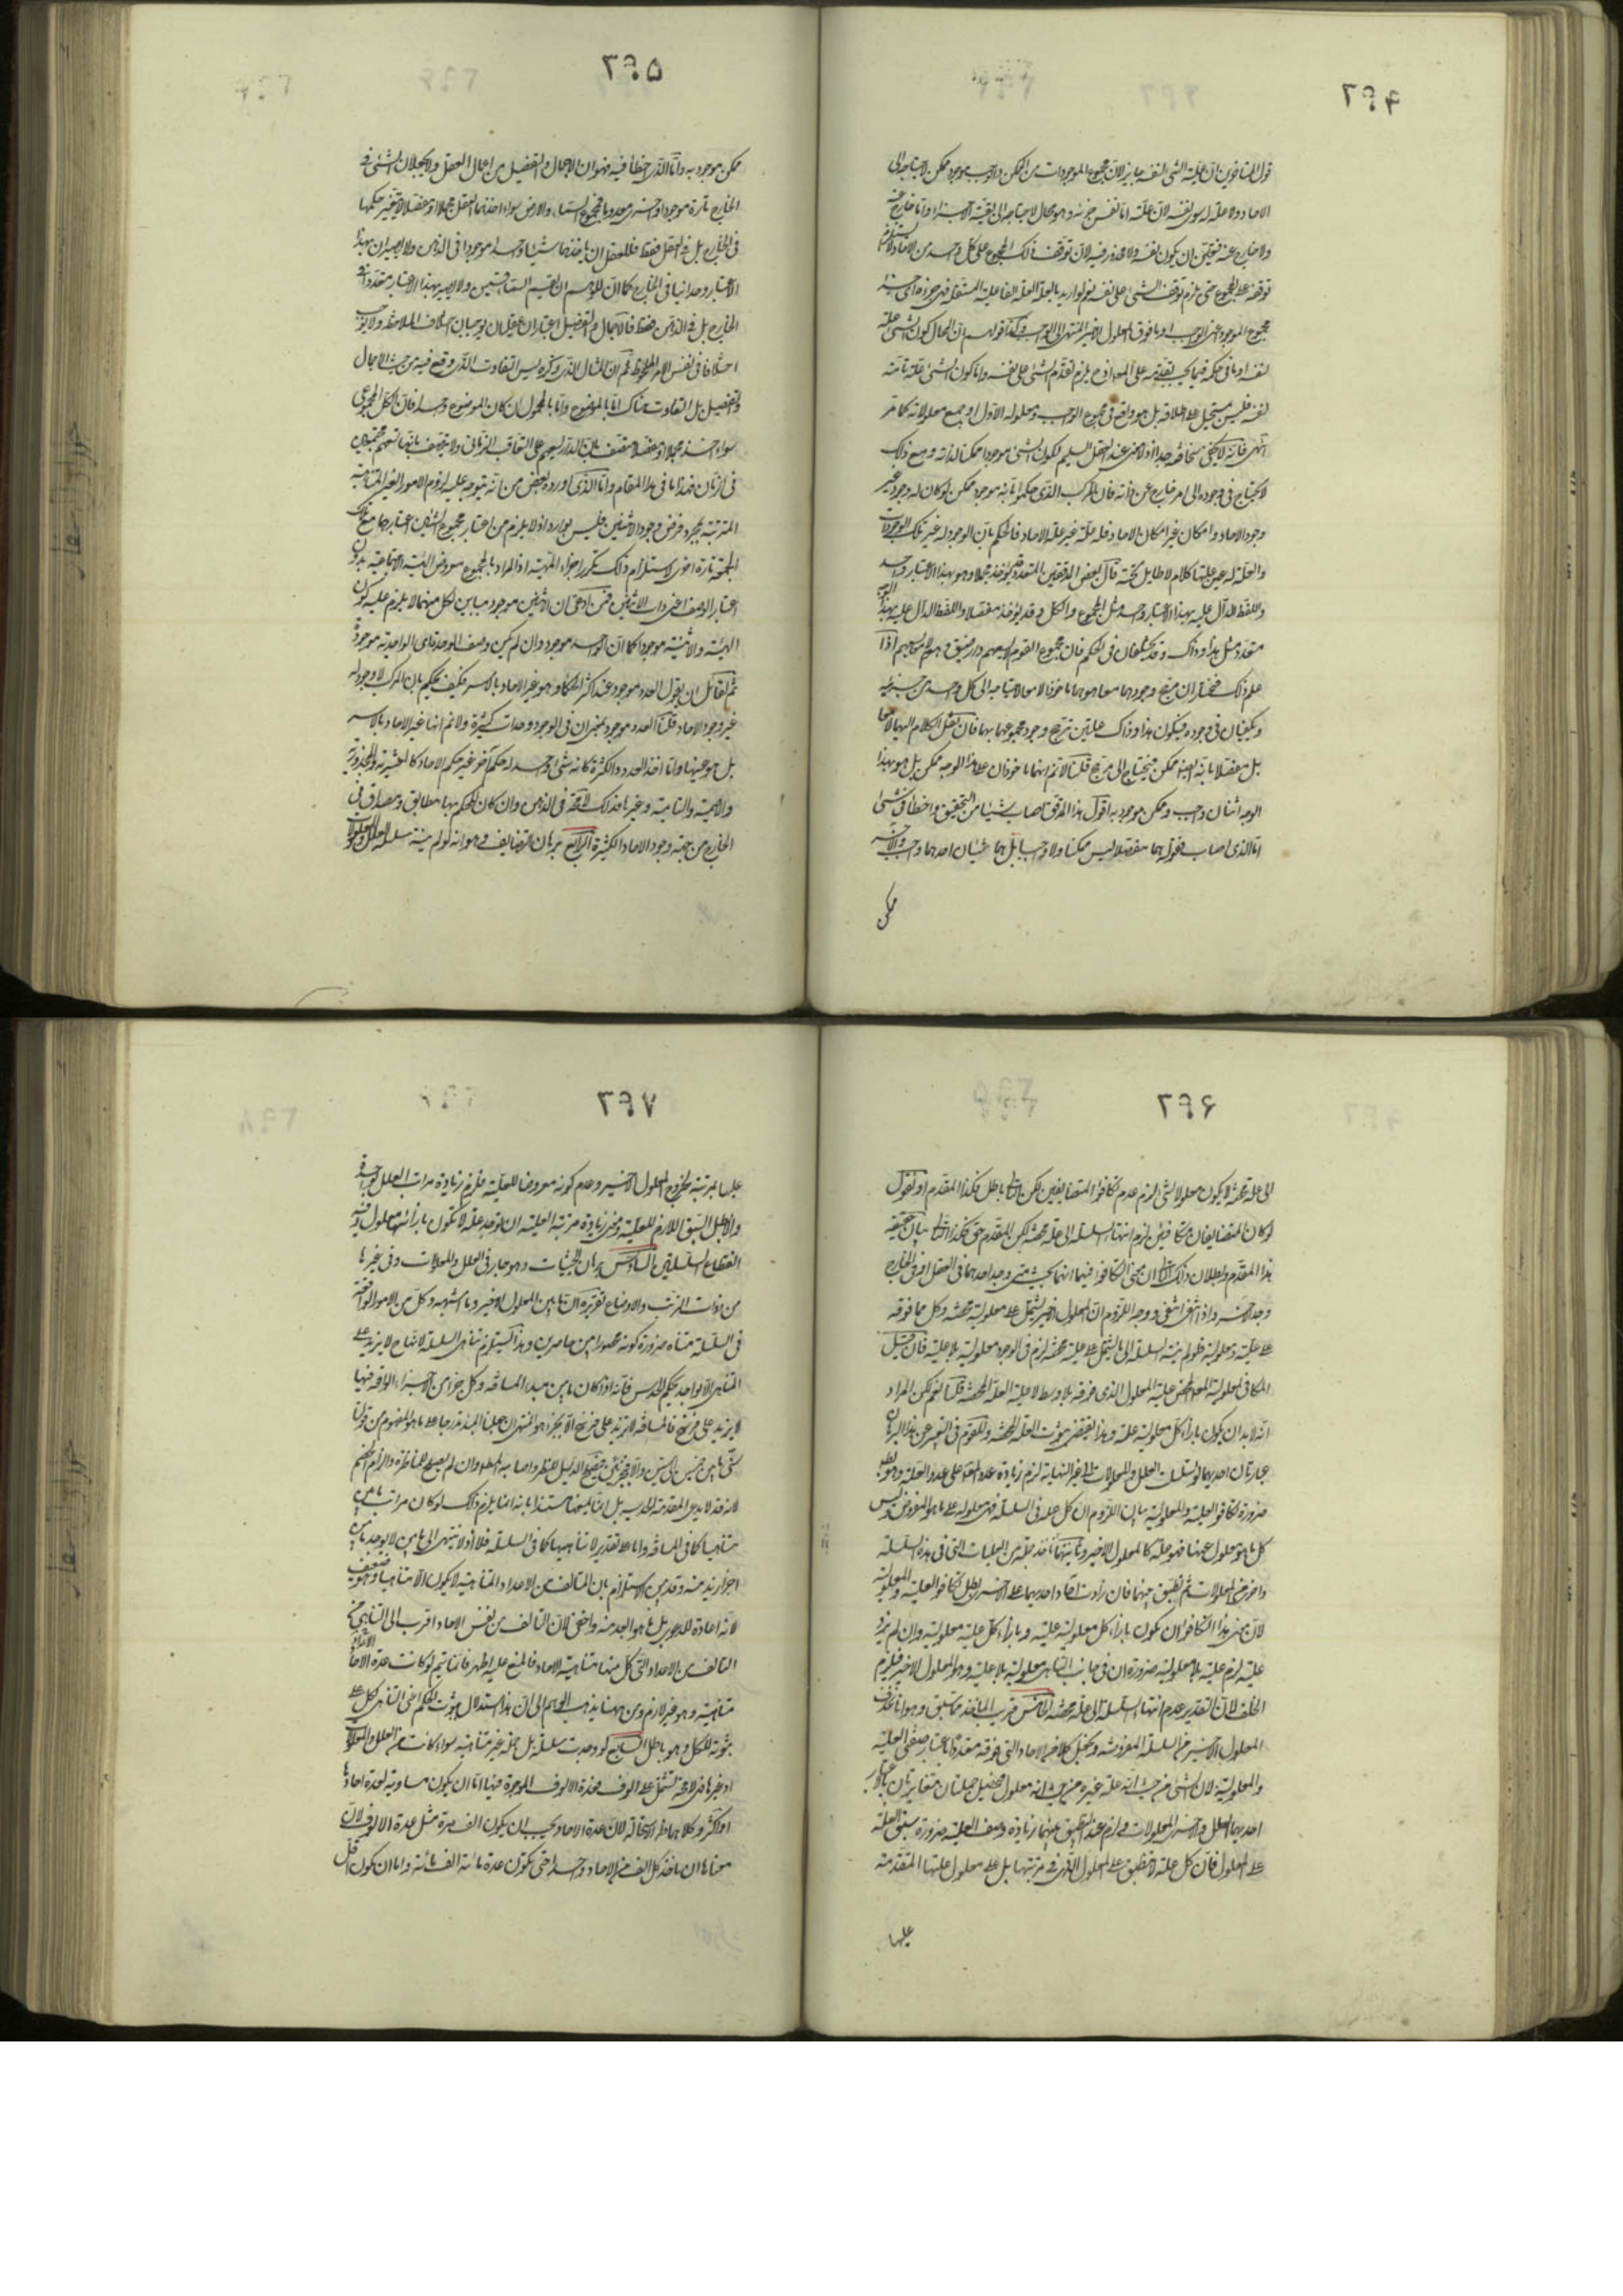 ٢٩٤
قول المتأخرين ان علية الشئ لنفسه جايز لان مجموع الموجودات من الممكن والواجب موجود ممكن لاحتياجه الى
الاحاد ولا علة له سوى نفسه لان علته اما نفس جزئه وهو محال لاحتياجه الى بقية الاجزاء واما خارج عنه
ولا خارج عنه فبقى ان يكون نفسه ولا محذور فيه لان توقف ذلك المجموع على كل واحد من الاحاد لا يستلزم
توقفه على المجموع حتى يلزم توقف الشئ على نفسه نعم لو اريد بالعلة العلة الفاعلية المستقلة فهى جزءه اى
مجموع الموجود عنى الواجب او ما فوق المعلول الاخير المنتهى الى الواجب وكذا قولهم ان المحال كون الشئ علة
لنفسه او ما فى حكمه فيما يجب تقدمه على المعلول اذ ح يلزم تقدم الشئ على نفسه واما كون الشئ علة تامة
لنفسه فليس مستحيل على اطلاقه بل هو واقع فى مجموع الواجب ومعلوله الاول او جميع معلولاته كما مر
انتهى فانه لا يخفى سخافته جدا اذ لا معنى عند العقل السليم لكون الشئ موجودا ممكنا لذاته ومع ذلك
لا يحتاج فى وجوده الى امر خارج عن ذاته فان المركب الذى حكموا بانه موجود ممكن لو كان له وجود غير
وجود الاحاد وامكان غير امكان الاحاد فله علة غير علة الاحاد فالحكم بان الموجود له غير تلك الموجودات
والعلة له عين عليتها كلام لا طايل تحته قال بعض المدققين المتعدد قد يؤخذ مجملا وهو بهذا الاعتبار واحد
واللفظ الدال عليه بهذا الاعتبار واحد مثل المجموع والكل وقد يؤخذ مفصلا واللفظ الدال عليه بهذا الوجه
متعدد مثل هذا وذاك وقد يختلفان فى الحكم فان مجموع القوم لا يسعهم دار ضيق وهم لا معا يسعهم اذا
علم ذلك فنختار ان مرجح وجودهما معا هو هما ماخوذا لا معا لاحتياجه الى كل واحد من جزئيه
ويكفيان فى وجوده فيكون هذا وذاك علتين ترجح وجود مجموعهما بهما فان نقل الكلام اليهما لا معا
بل مفصلا بانه ايضا ممكن فيحتاج الى مرجح قلنا لا نم انهما ماخوذان على هذا الوجه ممكن بل هو بهذا
الوجه اثنان واجب وممكن موجود به اقول هذا المدقق اصاب شيئا من التحقيق واخطا فى شئ
اما الذى اصاب فقوله هما مفصلا ليس ممكنا ولا واجبا بل هما شيئان احدهما واجب والاخر
ممكن
٢٩٥
ممكن موجود به واما الذى اخطأ فيه فهو ان الاجمال والتفصيل من اعمال العقل ولا يجعلان الشئ فى
الخارج تارة موجودا واخرى معدوما فمجموع السماء والارض سواء اخذهما العقل مجملا او مفصلا لا يتغير حكمهما
فى الخارج بل فى العقل فقط فللعقل ان ياخذهما شيئا واحدا موجودا فى الذهن ولا يصيران بهذا
الاعتبار وحدانيا فى الخارج كما ان للوهم ان يقسم السماء قسمين ولا يصير بهذا الاعتبار متعددا فى
الخارج بل فى الذهن فقط فالاجمال والتفصيل اعتباران عقليان يوجبان اختلاف الملاحظة ولا يوجب
اختلافا فى نفس الامر الملحوظ ثم ان المثال الذى ذكره ليس التفاوت الذى وقع فيه من حيث الاجمال
والتفصيل بل التفاوت هناك اما بالموضوع واما بالمحمول ان كان الموضوع واحدا فان الكل المجموعى
سواء اخذ مجملا او مفصلا متصف بان الدار يسعهم على التعاقب الزمانى ولا يتصف بانها تسعهم مجتمعين
فى زمان هذا ما فى هذا المقام واما الذى اورده بعض من انه يتوجه عليه لزوم الامور الغير المتناهية
المترتبة بمجرد فرض وجود الاثنين فليس بوارد اذ لا يلزم من اعتبار مجموع الشئين اعتبارهما مع تلك
الجمعية تارة اخرى لاستلزام ذلك تكرر اجزاء الماهية اذ المراد بالمجموع معروض الهيئة الاجتماعية بدون
اعتبار الوصف اعنى ذات الاثنين فمن ادعى ان الاثنين موجود مباين لكل منهما لا يلزم عليه كون
الهيئة والاثنينية موجودا كما ان الواحد موجود وان لم يكن وصف الوحدة اى الواحدية موجودة
ثم لقائل ان يقول العدد موجود عند اكثر الحكماء وهو غير الاحاد بالاسر فكيف يحكم بان المركب لا وجود له
غير وجود الاحاد قلنا العدد موجود بمعنى ان فى الوجود وحدات كثيرة ولا نم انها غير الاحاد بالاسر
بل هو عينها واما اخذ العدد والكثرة كانه شئ واحد له حكم آخر غير حكم الاحاد كالعشرية والمجذورية
والاصمية والتامية وغيرها فذلك لا يتحقق الا فى الذهن وان كان الحكم بها مطابق ومصداق فى
الخارج من جهة وجود الاحاد الكثيرة الرابع برهان التضايف وهو انه لو لم ينته سلسلة العلل والمعلولات
٢٩٦
الى علة محضة لا يكون معلولا لشئ لزم عدم تكافؤ المتضايفين لكن التالى باطل فكذا المقدم او نقول
لو كان المتضايفان متكافئين لزم انتهاء السلسلة الى علة محضة لكن المقدم حق فكذا التالى بيان حقية
هذا المقدم وبطلان ذلك التالى ان معنى التكافؤ فيهما انهما بحيث متى وجد احدهما فى العقل او فى الخارج
وجد الاخر واذا انتفى انتفى ووجه اللزوم ان المعلول الاخير يشتمل على معلولية محضة وكل مما فوقه
على علية ومعلولية فلو لم ينته السلسلة الى ما يشتمل على علية محضة لزم فى الوجود معلولية بلا علية فان قيل
المكافى لمعلولية المعلول المحض علية المعلول الذى فوقه بلا وسط لا علية العلة المحضة قلنا نعم لكن المراد
انه لابد ان يكون بازاء كل معلولية علية وهذا يقتضى ثبوت العلة المحضة وللقوم فى التعبير عن هذا البرهان
عبارتان احديهما لو تسلسلت العلل والمعلولات الى غير النهاية لزم زيادة عدد المعلول على عدد العلية وهو باطل
ضرورة تكافؤ العلية والمعلولية بيان اللزوم ان كل علة فى السلسلة فهى معلولة على ما هو المفروض وليس
كل ما هو معلول فيها فهو علة كالمعلول الاخير وثانيتهما ناخذ جملة من العليات التى فى هذه السلسلة
واخرى من المعلولات ثم نطبق بينهما فان زادت احاد احديهما على الاخرى بطل تكافؤ العلية والمعلولية
لان معنى هذا التكافؤ ان يكون بازاء كل معلولية علية وبازاء كل علية معلولية وان لم يزد
علية لزم علية بلا معلولية ضرورة ان فى جانب التناهى معلولية بلا علية وهو المعلول الاخير فيلزم
الخلف لان التقدير عدم انتهاء السلسلة الى علة محضة الخامس قريب الماخذ مما سبق وهو انا نحذف
المعلول الاخير من السلسلة المفروضة ونجعل كلا من الاحاد التى فوقه متعددا باعتبار وصفى العلية
والمعلولية لان الشئ من حيث انه علة غيره من حيث انه معلول فيحصل جملتان متغايرتان بالاعتبار
احديهما العلل والاخرى المعلولات ويلزم عند التطبيق بينهما زيادة وصف العلية ضرورة سبق العلة
على المعلول فان كل علة لا تنطبق على المعلول الذى فى مرتبتها بل على معلول علتها المتقدمة
عليها
٢٩٧
عليها بمرتبة لخروج المعلول الاخير وعدم كونه معروضا للعلية فلزم زيادة مراتب العلل بواحدة
والا بطل السبق اللازم للعلية ومعنى زيادة مرتبة العلية ان يوجد علة لا يكون بازائها معلول وفيه
انقطاع السلسلتين السادس برهان الحيثيات وهو جار فى العلل والمعلولات وفى غيرها
من ذوات الترتب والاوضاع تقريره ان ما بين المعلول الاخير وما اشبهه وكل من الامور الواقعة
فى السلسلة متناه ضرورة كونه محصورا بين حاصرين وهذا يستلزم تناهى السلسلة لانها ح لا يزيد على
المتناهى الا بواحد بحكم الحدس فانه اذا كان ما بين مبدء المسافة وكل جزء من الاجزاء الواقعة فيها
لا يزيد على فرسخ فالمسافة لا يزيد على فرسخ الا بجزء هو المنتهى ان جعلنا المبدء مندرجا على ما هو المفهوم من قولنا
سنى ما بين خمسين الى ستين والا فبجزئين فيصلح الدليل للنظر واصابة المطلوب وان لم يصلح للمناظرة والزام الخصم
لانه قد لا يذعن المقدمة الحدسية بل انما يمنعها مستندا بانه انما يلزم ذلك لو كان مراتب ما بين
متناهيا كما فى المسافة واما على تقدير لا تناهيها كما فى السلسلة فلا اذ لا ينتهى الى ما بين لا يوجد ما بين
اخر ازيد منه وقد بين الاستلزام بان المتالف من الاعداد المتناهية لا يكون الا متناهيا وهو ضعيف
لانه اعادة للدعوى بل ما هو ابعد منه واخفى لان التالف من نفس الاحاد اقرب الى التناهى من
التالف من الاعداد التى كل منها متناهية الاحاد فالمنع عليه اظهر فانما تتم لو كانت عدة الاعداد
متناهية وهو غير لازم ومن ههنا يذهب الوهم الى ان هذا استدلال بثبوت الحكم اعنى التناهى لكل على
ثبوته للكل وهو باطل السابع لو وجدت سلسلة بل جملة غير متناهية سواء كانت من العلل والمعلولات
او غيرها فهى لا محة تشتمل على الوف فعدة الالوف الموجودة فيها اما ان يكون مساوية لعدة احادها
او اكثر وكلاهما ظاهر الاستحالة لان عدة الاحاد يجب ان يكون الف مرة مثل عدة الالوف لان
معناها ان ناخذ كل الف من الاحاد واحدا حتى يكون عدة مائة الف مائة واما ان يكون اقل